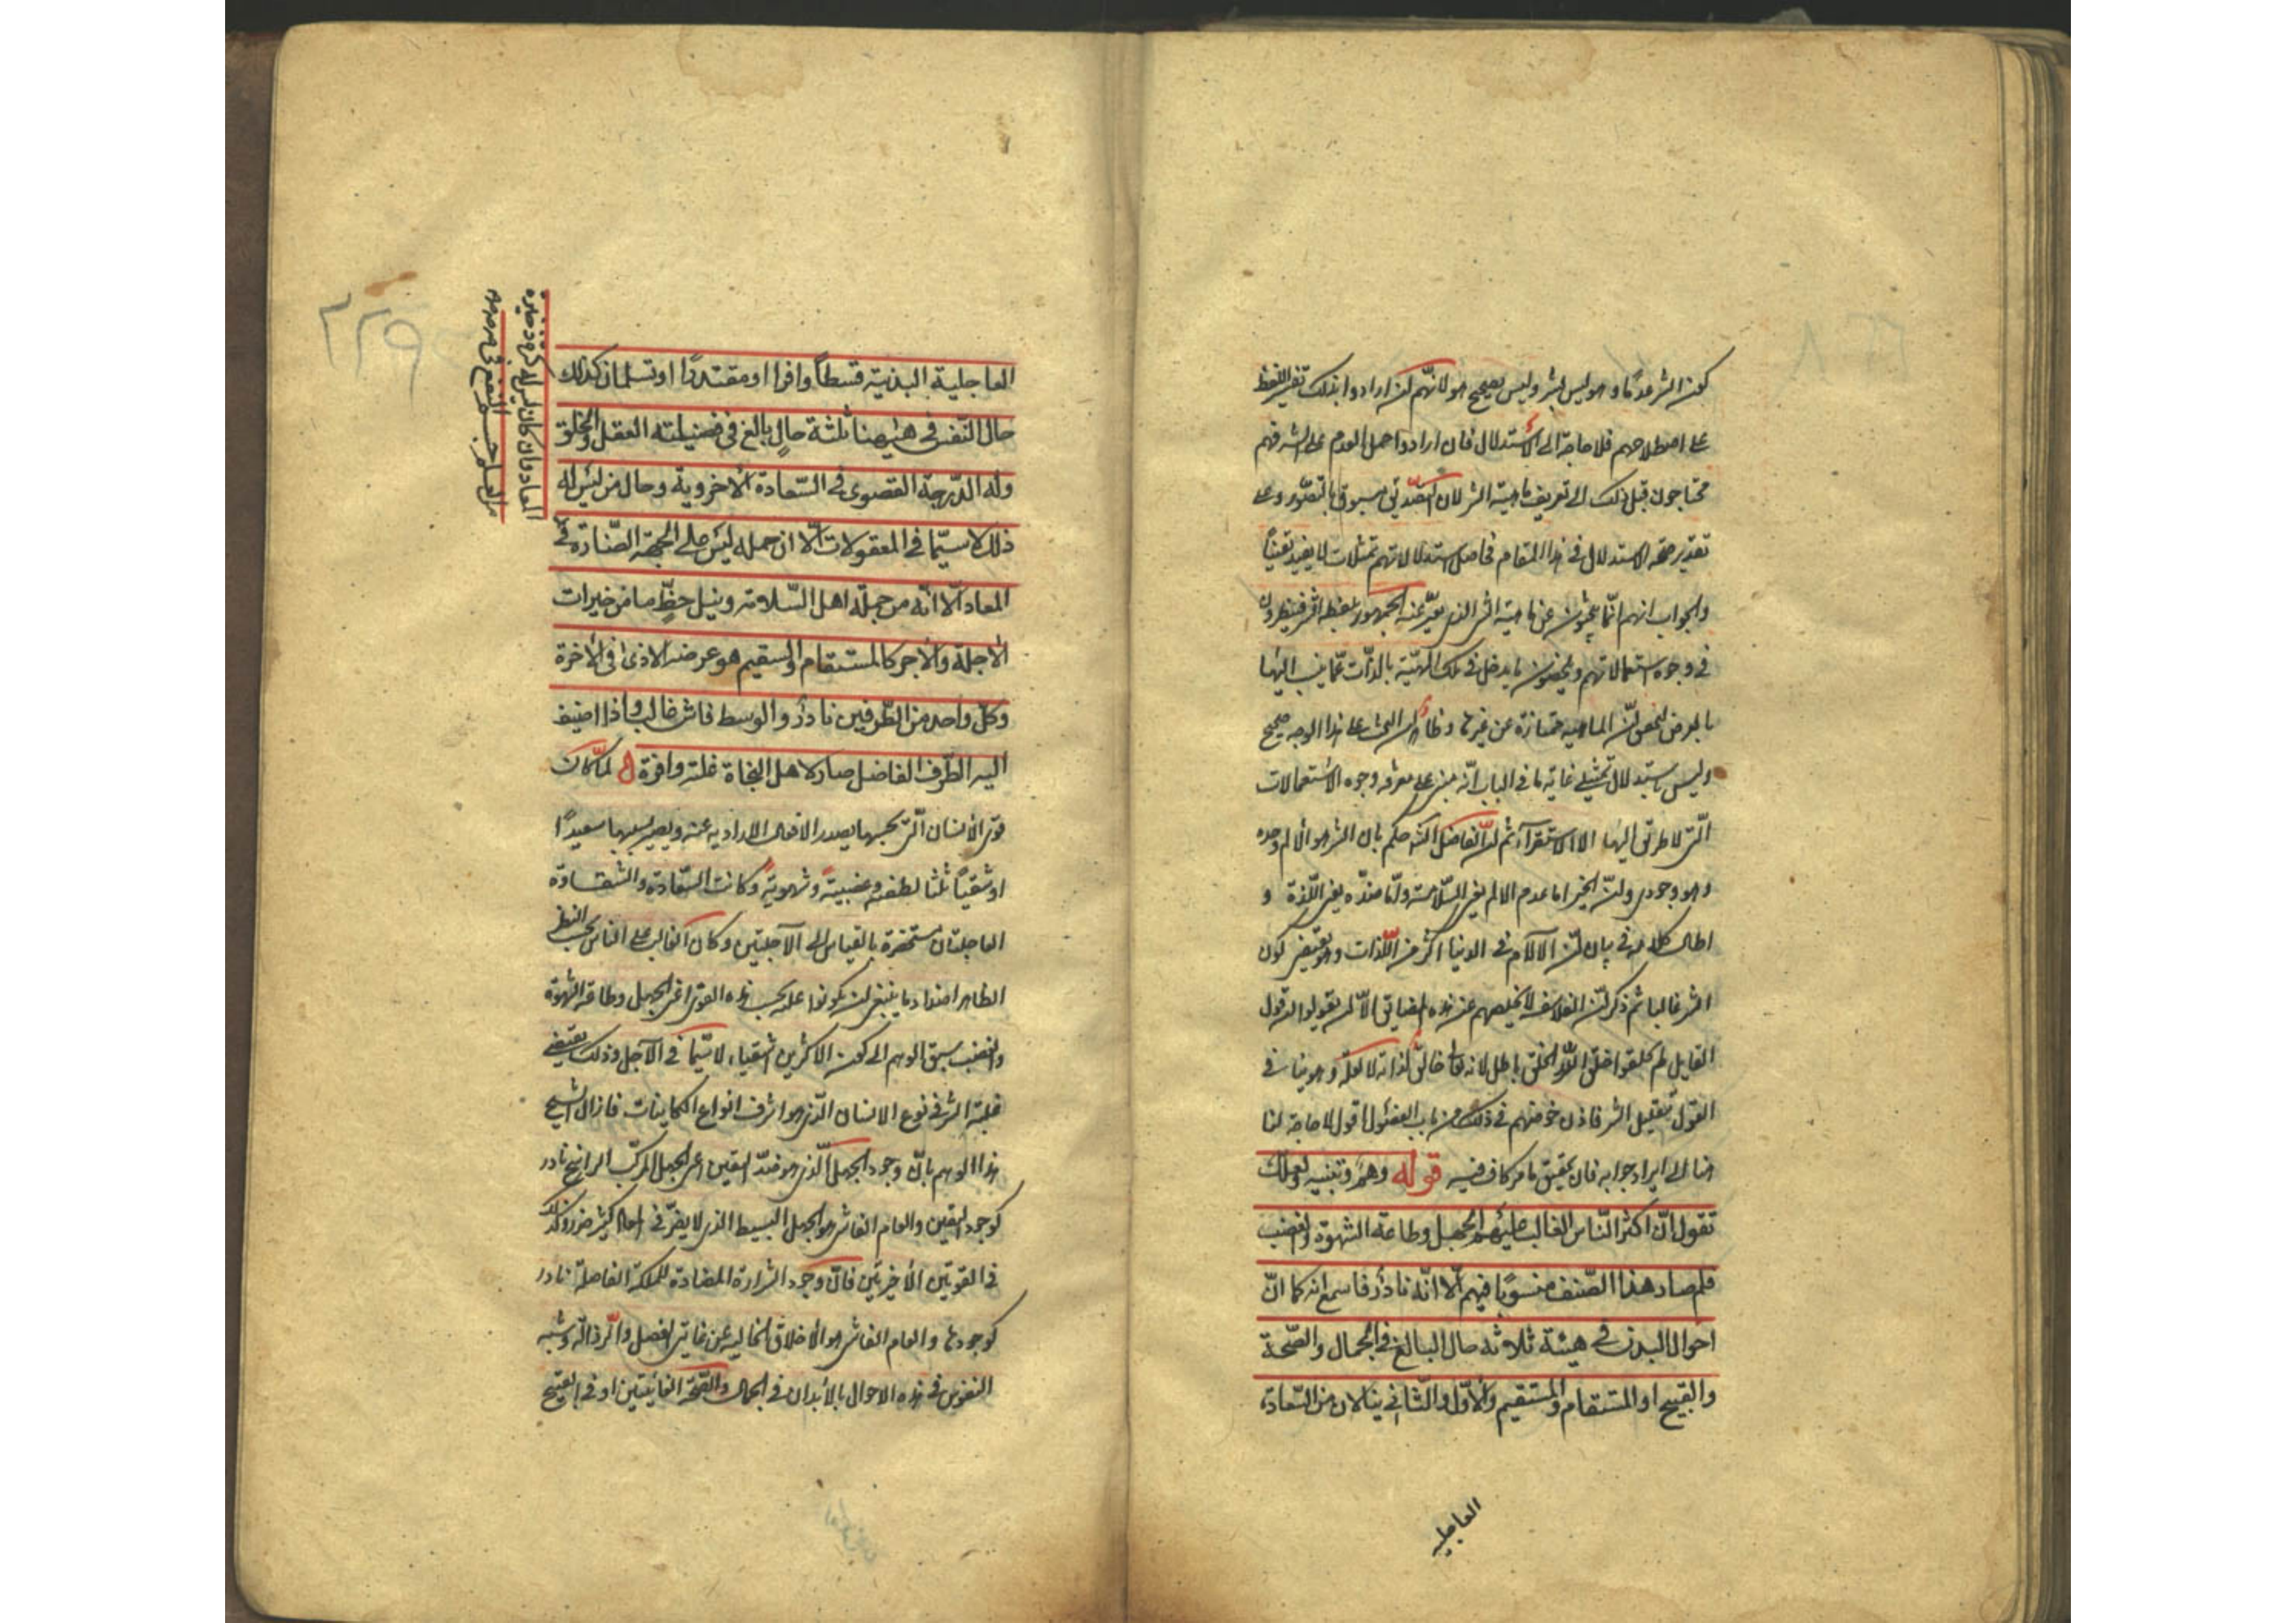 كون الشر عدمًا وهو ليس بشر وليس بصحيح هو لانهم ان ارادوا بذلك تفسير اللفظ
على اصطلاحهم فلا حاجة الى الاستدلال فان ارادوا حمل العدم على الشر فهم
محتاجون قبل ذلك الى تعريف ماهية الشر لان التصديق مسبوق بالتصور وعلى
تقدير صحة الاستدلال في هذا المقام فحاصل استدلالاتهم تمثلات لا يفيد يقينًا
والجواب انهم انما يبحثون عن ماهية الشر الذى يعبر عنه الجمهور بلفظ الشر فينظرون
في وجوه استعمالاتهم ويلخصون ما يدخل في تلك المهيّة بالذات عما ينسب اليها
بالعرض ان الماهية ممتازة عن غيرها وظاهر ان البحث على هذا الوجه صحيح
وليس باستدلال تمثيلى غاية ما في الباب انه مبنى على معرفة وجوه الاستعمالات
التى لا طريق اليها الا الاستقراء ثم ان الفاضل الشارح حكم بان الشر هو الالم وحده
وهو وجودى وان الخير اما عدم الالم يعنى السلامة واما ضده يعنى اللذة و
اطال كلامه في بيان ان الالام في الدنيا اكثر من اللذات وهو يقتضى كون
الشر غالبا ثم ذكر ان الفلاسفة لا يخلصهم عن هذه المضايق الا ان يقولوا ان قول
القايل لم خلق الله الخلق باطل لانه تعالى خالق لذاته لا لعلة وهو ينافى
القول بتعليل الشر فاذن خوضهم في ذلك من باب الفضول اقول لا حاجة لنا
هنا الى ايراد جوابه فان تحقيق ما مر كاف فيه قوله وهم وتنبيه ولعلك
تقول ان اكثر الناس الغالب عليهم الجهل وطاعة الشهوة والغضب
فلم صار هذا الصنف منسوبًا فيهم الا انه نادر فاسمع انه كما ان
احوال البدن في هيئة ثلاثة حال البالغ في الجمال والصحة
والقبيح او المستقام والمستقيم والاول والثاني ينالان من السعادة
العاجلية
العاجلية البدنية قسطًا وافرا او مقتدرًا او تسلمان كذلك
حال النفس في هيئتها ثلثة حال بالغ في فضيلته العقل والخلق
وله الدرجة القصوى في السعادة الاخروية وحال من ليس له
ذلك لا سيما في المعقولات الا ان جهله ليس على الجهة الضارة في
المعاد الا انه من جملة اهل السلامة ونيل حظ ما من خيرات
الاجلة والاخر كالمستقام والسقيم هو عرضة الاذى في الاخرة
وكل واحد من الطرفين نادر والوسط فاش غالب واذا اضيف
اليه الطرف الفاضل صار لاهل النجاة غلبة وافرة لما كان
قوى الانسان التى بحسبها يصدر الافعال الارادية عنه ويصير بسببها سعيدًا
او شقيًا ثلثا نطقية وغضبية وشهوية وكانت السعادة والشقاوة
العاجلتان مستحقرة بالقياس الى الآجلتين وكان الغالب على الناس بحسب النظر
الظاهر اضداد ما ينبغى ان يكونوا عليه بحسب هذه القوى اعنى الجهل وطاعة الشهوة
والغضب سبق الوهم الى كون الاكثرين اشقياء لا سيما في الآجل وذلك يقتضى
غلبة الشر في نوع الانسان الذى هو اشرف انواع الكاينات فازال الشيخ
هذا الوهم بان وجود الجهل الذى هو ضد اليقين اعنى الجهل المركب الراسخ نادر
كوجود اليقين والعام الفاشى هو الجهل البسيط الذى لا يضر في المعاد كثير ضرر وكذلك
في القوتين الاخرتين فان وجود الشرارة المضادة للملكة الفاضلة نادر
كوجودها والعام الفاشى هو الاخلاق الخالية عن غايتى الفضل والرذالة وشبه
النفوس في هذه الاحوال بالابدان في الجمال والصحة الفايقتين او في القبح
المعاد وان كان ليس له كثير ذخيرة
من العلم جسيم النفع في
٢٢٩